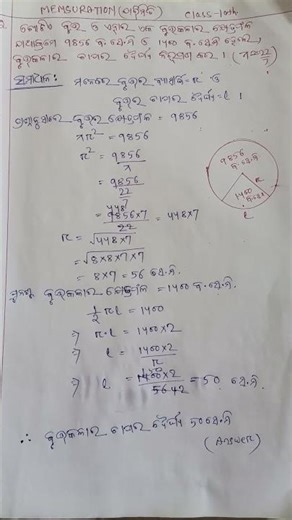 MENSURATION (ପରିମିତି) Class-10th
ଗୋଟିଏ ବୃତ୍ତ ଓ ଏହାର ଏକ ବୃତ୍ତକଳାର କ୍ଷେତ୍ରଫଳ
ଯଥାକ୍ରମେ 9856 ବ.ସେ.ମି ଓ 1400 ବ.ସେ.ମି ହେଲେ,
ବୃତ୍ତକଳାର ଚାପର ଦୈର୍ଘ୍ୟ ନିରୂପଣ କର । (π=22/7)
ସମାଧାନ: ମନେକର ବୃତ୍ତର ବ୍ୟାସାର୍ଦ୍ଧ = r ଓ
ବୃତ୍ତର ଚାପର ଦୈର୍ଘ୍ୟ = l ।
ପ୍ରଶ୍ନାନୁସାରେ ବୃତ୍ତର କ୍ଷେତ୍ରଫଳ = 9856
πR² = 9856
R² = 9856/π
= 9856/(22/7)
= 448 9856×7/22 = 448×7
R = √448×7
= √8×8×7×7
= 8×7 = 56 ସେ.ମି.
9856 ବ.ସେ.ମି
1400 ବ.ସେ.ମି
l
ପୁନଶ୍ଚ ବୃତ୍ତକଳାର କ୍ଷେତ୍ରଫଳ = 1400 ବ.ସେ.ମି.
1/2 Rl = 1400
⇒ R·l = 1400×2
⇒ l = 1400×2/R
⇒ l = 1400×2/56 = 50 ସେ.ମି.
∴ ବୃତ୍ତକଳାର ଚାପର ଦୈର୍ଘ୍ୟ 50 ସେ.ମି
(Answer)